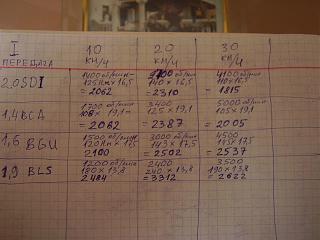 I
ПЕРЕДАЧА
10
КМ/Ч
20
КМ/Ч
30
КМ/Ч
2.0SDI
1400 об/мин
125Нм × 16,5
= 2062
об/мин
140 × 16,5
= 2310
4100 об/мин
110 × 16,5
= 1815
1,4BCA
1700 об/мин
108 × 19,1
= 2062
3400
125 × 19,1
= 2387
5000 об/мин
105 × 19,1
= 2005
1,6 BGU
1500 об/мин
120Нм × 17,5
2100
3000 об/мин
143 × 17,5
= 2502
4500
× 17,5
= 2537
1,9 BLS
1200 об/мин
180 × 13,8
2484
2400
240 × 13,8
= 3312
3500
190 × 13,8
= 2622